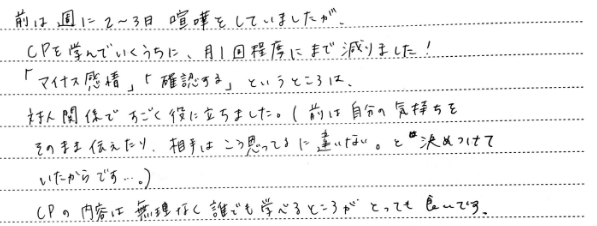 前は週に2～3日 喧嘩をしていましたが、
CPを学んでいくうちに、月1回程度にまで減りました！
「マイナス感情」「確認する」というところは、
対人関係ですごく役に立ちました。(前は自分の気持ちを
そのまま伝えたり、相手はこう思ってるに違いない。と決めつけて
いたからです…。)
CPの内容は無理なく誰でも学べるところがとっても良いです。